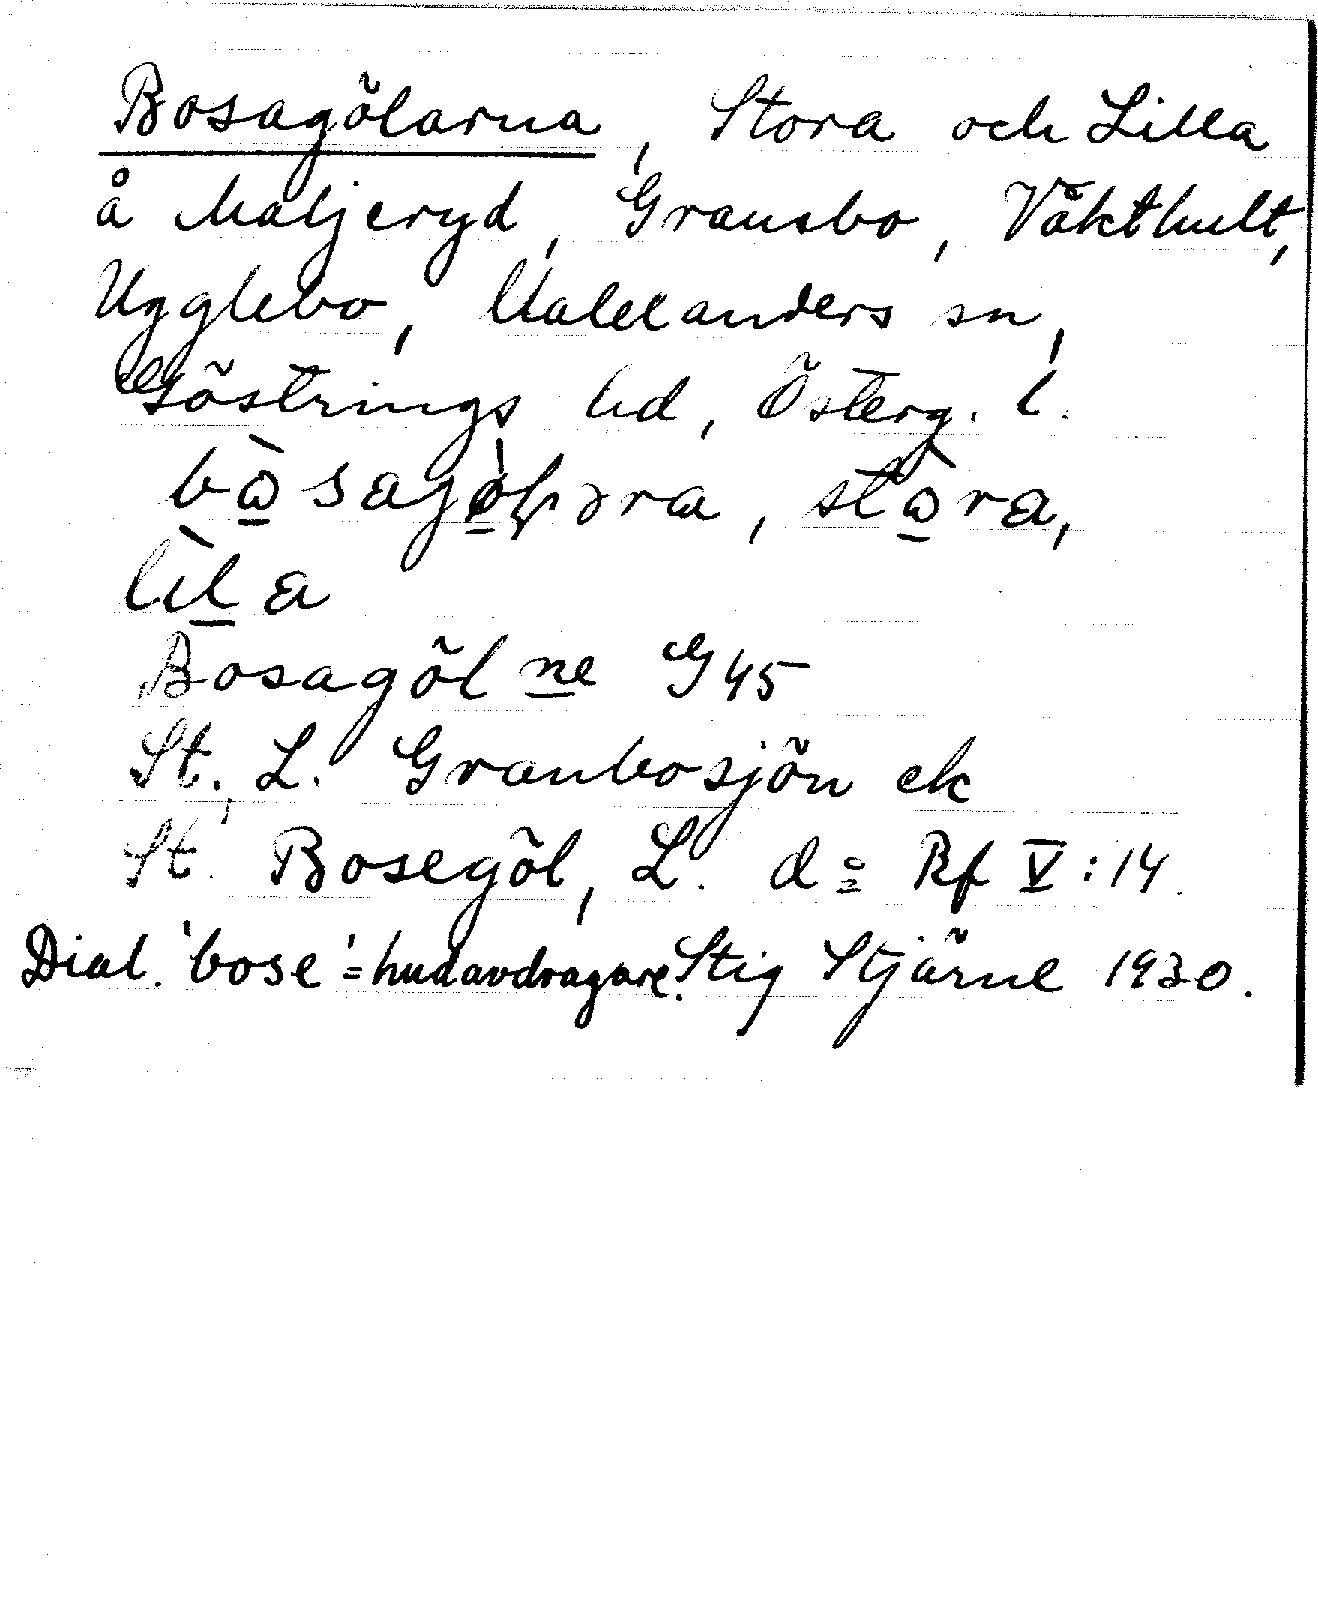 Bosagölarna, Stora och Lilla
å Maljeryd, Gransbo, Väkthult,
Ugglebo, Malexanders sn,
Göstrings hd, Österg. l.
stòra,
lìla
Bosagölne G45
St., L. Granbosjön ek
St. Bosegöl, L. d:o Rf V:14.
Dial. 'bose' = hudavdragare. Stig Stjärne 1930.